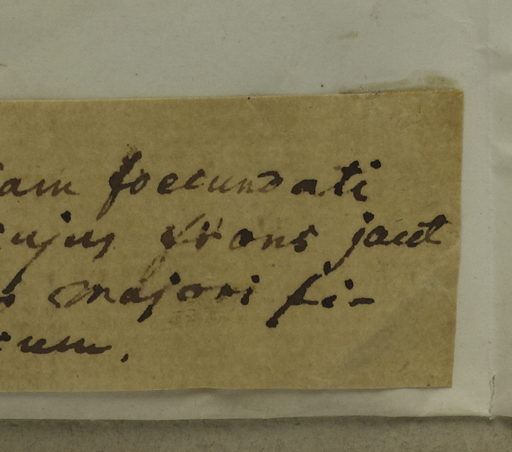 iam foecundati
cujus frons jacet
s majori fi-
rum.